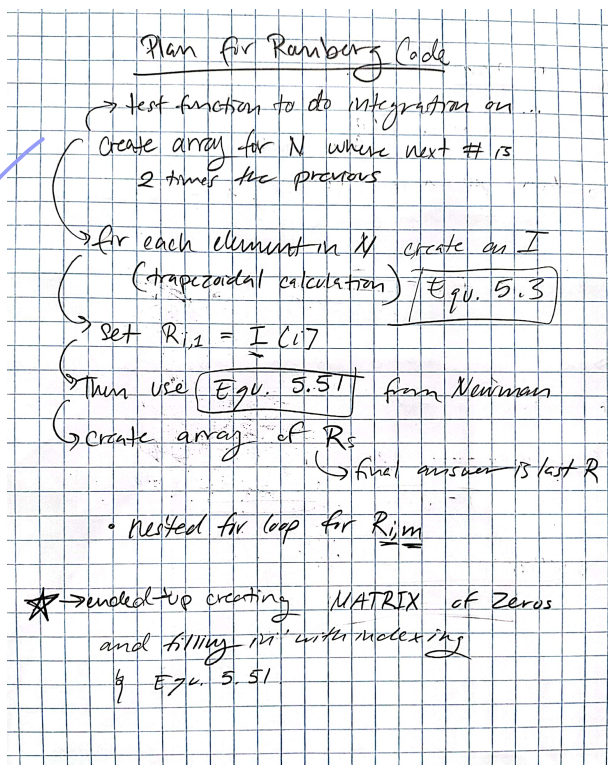 Plan for Romberg Code
→ test function to do integration on ..
create array for N where next # is
2 times the previous
→ for each element in N create an I
(trapezoidal calculation) Equ. 5.3
→ set Ri,1 = I [i]
→ Then use Equ. 5.51 from Newman
→ create array of Rs
→ final answer is last R
• nested for loop for Ri,m
☆ → ended up creating MATRIX of Zeros
and filling in with indexing
& Equ. 5.51